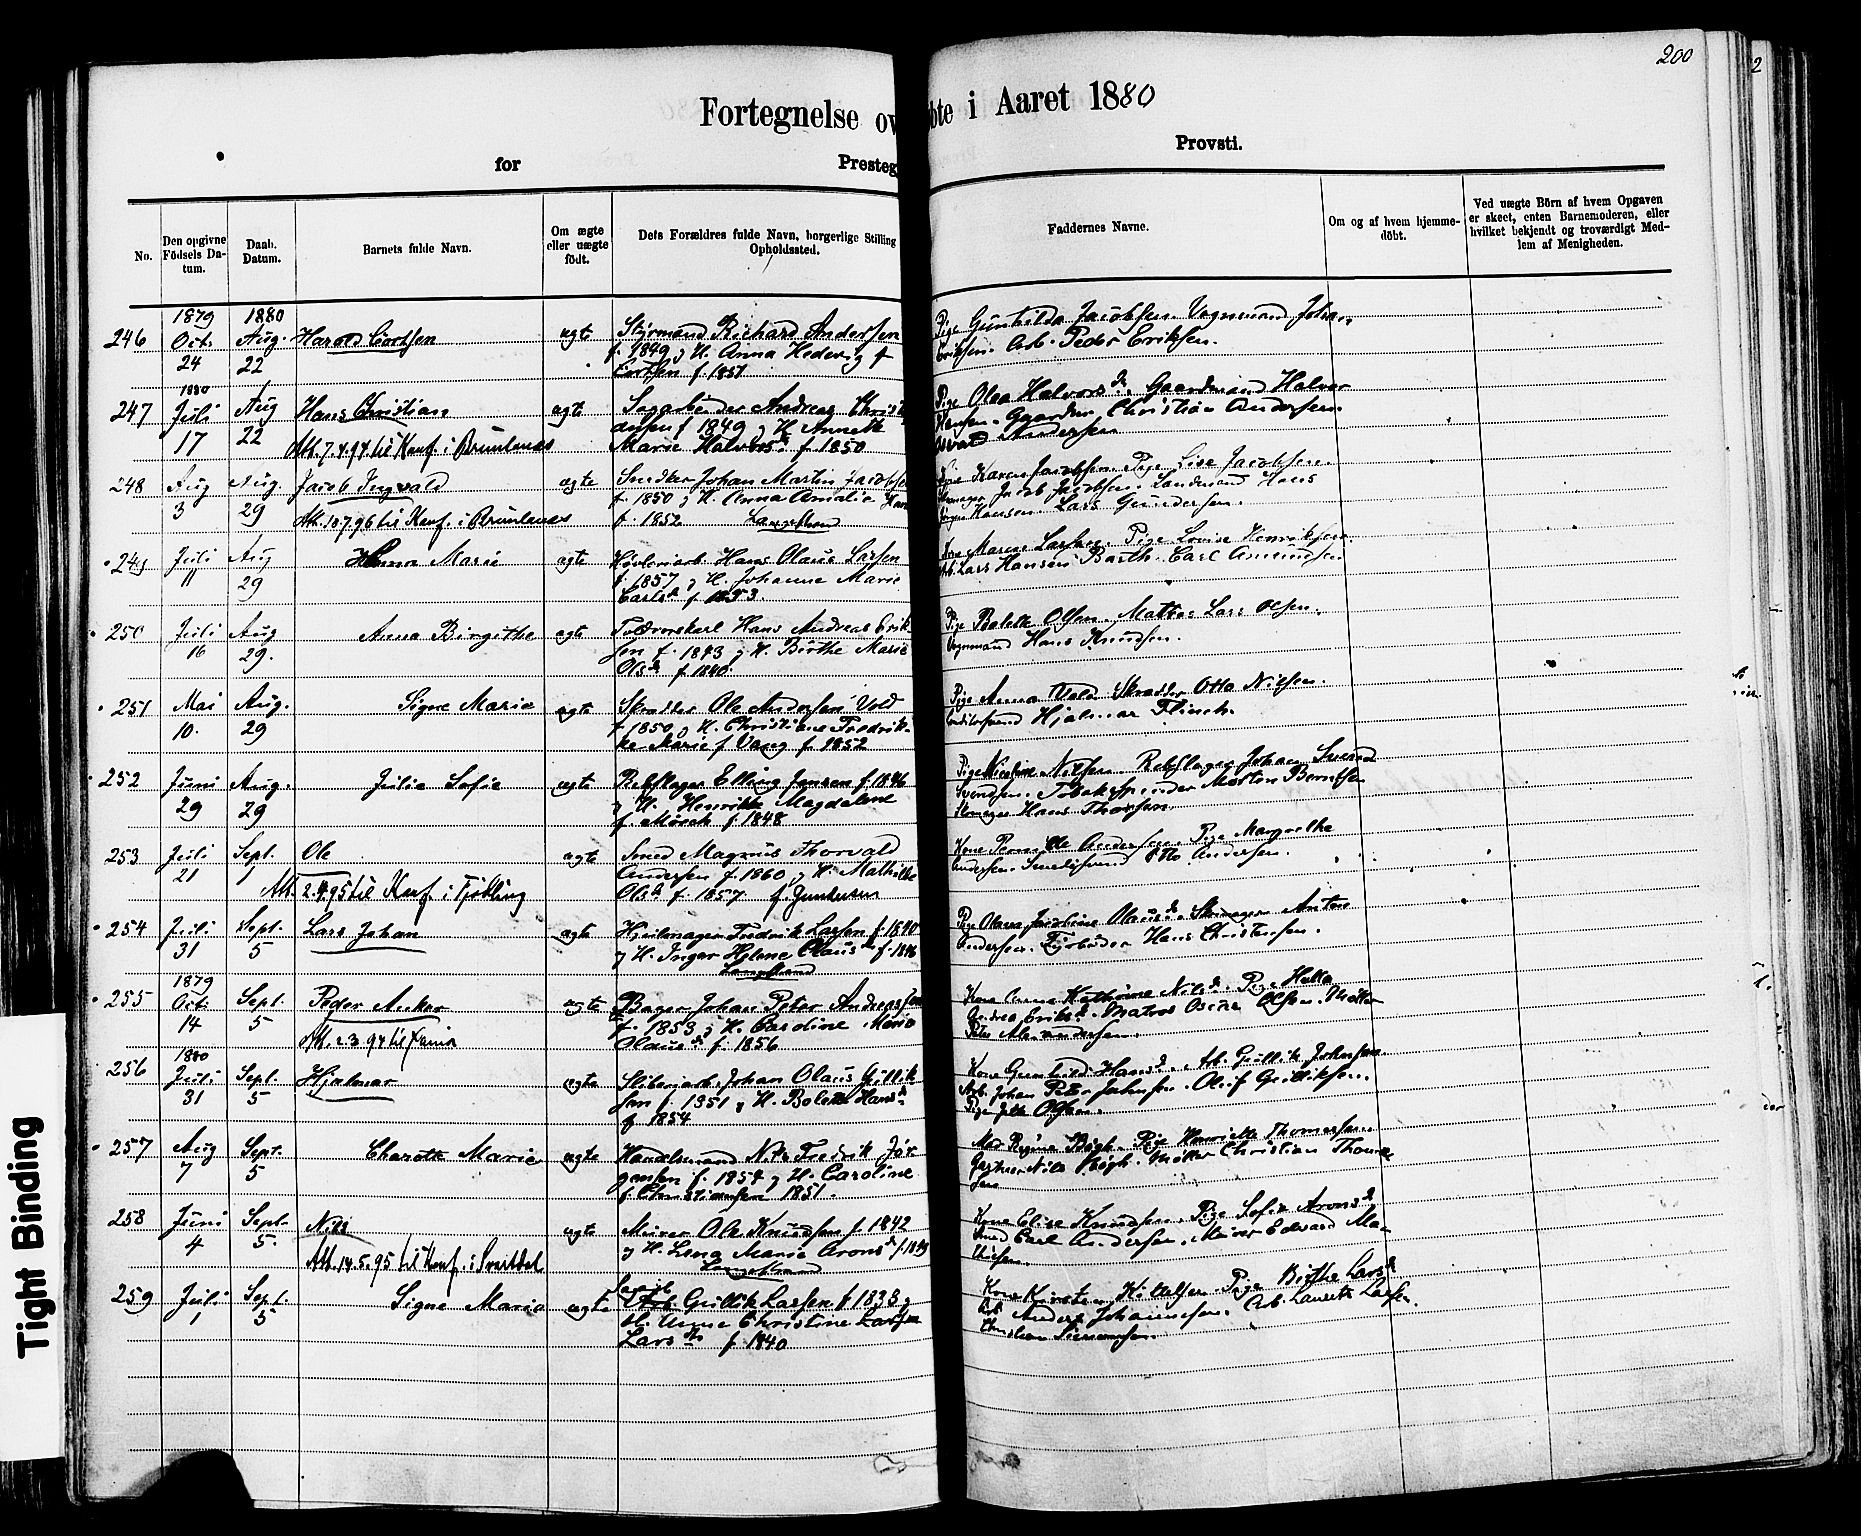 200
2
Fortegnelse ov
bte i Aaret 1880
for
Presteg
Provsti.
No.
Den opgivne Födsels Da-tum.
Daab. Datum.
Barnets fulde Navn.
Om ægte eller uægte födt.
Dets Forældres fulde Navn, borgerlige Stilling
Opholdssted.
Faddernes Navne.
Om og af hvem hjemme-döbt.
Ved uægte Börn af hvem Opgaven
er skeet, enten Barnemoderen, eller
hvilket bekjendt og troværdigt Med-
lem af Menigheden.
1879 1880
246 Oct. Aug. Harald Cortsen ægte Styrmand Richard Andersen
24 22 f. 1849 og H. Anna Hedevig f.
Cortsen f. 1851
Pige Gunhilda Jacobsen. Vognmand Johan
Eriksen. Arb. Peder Eriksen.
1880
247 Juli Aug Hans Christian ægte Sagarbeider Andreas Christ
17 22 Att. 7.4.94 til Konf. i Brunlanes
f 1849 og H. Annette
Marie Halvorsd. f. 1850
Pige Olea Halvorsd. Gaardmand Halvor
Hansen. Gaardm. Christian Andersen.
Osvald Andersen
248 Aug Aug. Jacob Ingvald ægte Snedker Johan Martin Jacobsen
3 29 f. 1850 og H. Anna Amalie Hans
Att. 10.7.96 til Konf. i Brunlanes
f. 1852 Langestrand
Pige Karen Jacobsen. Pige Lise Jacobsen.
Jacob Jacobsen. Landmand Hans
Jørgen Hansen. Lars Gundersen.
249 Juli Aug Hanna Marie ægte Høvleriarb. Hans Olaus Larsen
11 29 f. 1857 og H. Johanne Marie
Carlsd. f. 1853.
Kone Maren Larsen. Pige Lovise Henriksen.
Arb. Lars Hansen Barth. Carl Amundsen
250 Juli Aug Anna Birgithe ægte Hans Andreas Erik
16 29. sen f. 1843 og H. Birthe Marie
Olsd. f 1840.
Pige Bolette Olsen. Matros Lars Olsen.
Vognmand Hans Knudsen.
251 Mai Aug. Signe Marie ægte Skrædder Ole Andersen Vold
10. 29 f 1850 og H. Christiane Fredrik-
ke Marie f Vang f. 1852
Pige Anna Vold Skrædder Otto Nilsen.
Hjalmar Flinch.
252 Juni Aug. Julie Sofie ægte Rebslager Elling Jensen f. 1846
29 29 og H. Henrikke Magdalene
f. Mørch f. 1848
Pige Nicoline Nilsen Rebslager Johan Svend
Svendsen. Tobakspinder Morten Berntsen
Skomager Hans Thorsen.
253 Juli Sept. Ole ægte Smed Magnus Thorvald
21 1 Andersen f. 1860 og H. Mathilde
Att. 2.4.95 til Konf. i Tjølling
Olsd. f. 1857 f. Gundersen
Andersen. Pige Margrethe
Andersen. Otto Andersen.
254 Juli Sept. Lars Johan ægte Hjulmager Fredrik Larsen f. 1840
31 5 og H. Inger Helene Olausd. f. 1846
Langestrand
Pige Olava Jacobine Olausd. Skomager Anton
Andersen. Fyrbøder Hans Christensen.
1879
255 Oct. Sept. Peder Anker ægte Bager Johan Peter Andreassen
14 5 f. 1853 og H. Caroline Marie
Olausd. f. 1856
Kone Anna Kathrine Nilsd. Pige Hella
Andrea Eriksd. Matros Oscar Olsen. Møller
Peter Alexandersen.
1880
256 Juli Sept. Hjalmar ægte Sliberiarb. Johan Olaus Gullik
31 5 sen f. 1851 og H. Bolette Hansd.
f 1854
Kone Gunhild Hansd. Arb. Gullik Johnsen.
Arb. Johan Peter Johnsen. Oluf Gulliksen.
Pige Olsen.
257 Aug Sept. Charotte Marie ægte Handelsmand Nils Fredrik Jør
7 5 gensen f. 1854 og H. Caroline
f. Christiansen 1851.
Mad. Regine Bögh. Pige Henriette Thomassen.
Gartner Nils Bögh. Møller Christian Thomas
sen
258 Juni Sept. Nils ægte Murer Ole Knudsen f. 1842
4 5. og H. Lena Marie Aronsd. f. 1849
Att. 14.5.95 til Konf. i Svartdal
Langestrand
Kone Elise Knudsen. Pige Sofie Aronsd.
Smed Carl Andersen. Murer Edvard Ma-
thisen.
259 Juli Sept. Signe Marie ægte Arb. Gullik Larsen f 1838 og
1 5 H. Anne Christine
Larsdtr f. 1840
Kone Kirsten Kittelsen. Pige Birthe Larsd.
Arb. Anders Johannesen. Arb. Lauretz Larsen.
Christian Simensen.
Tight Binding